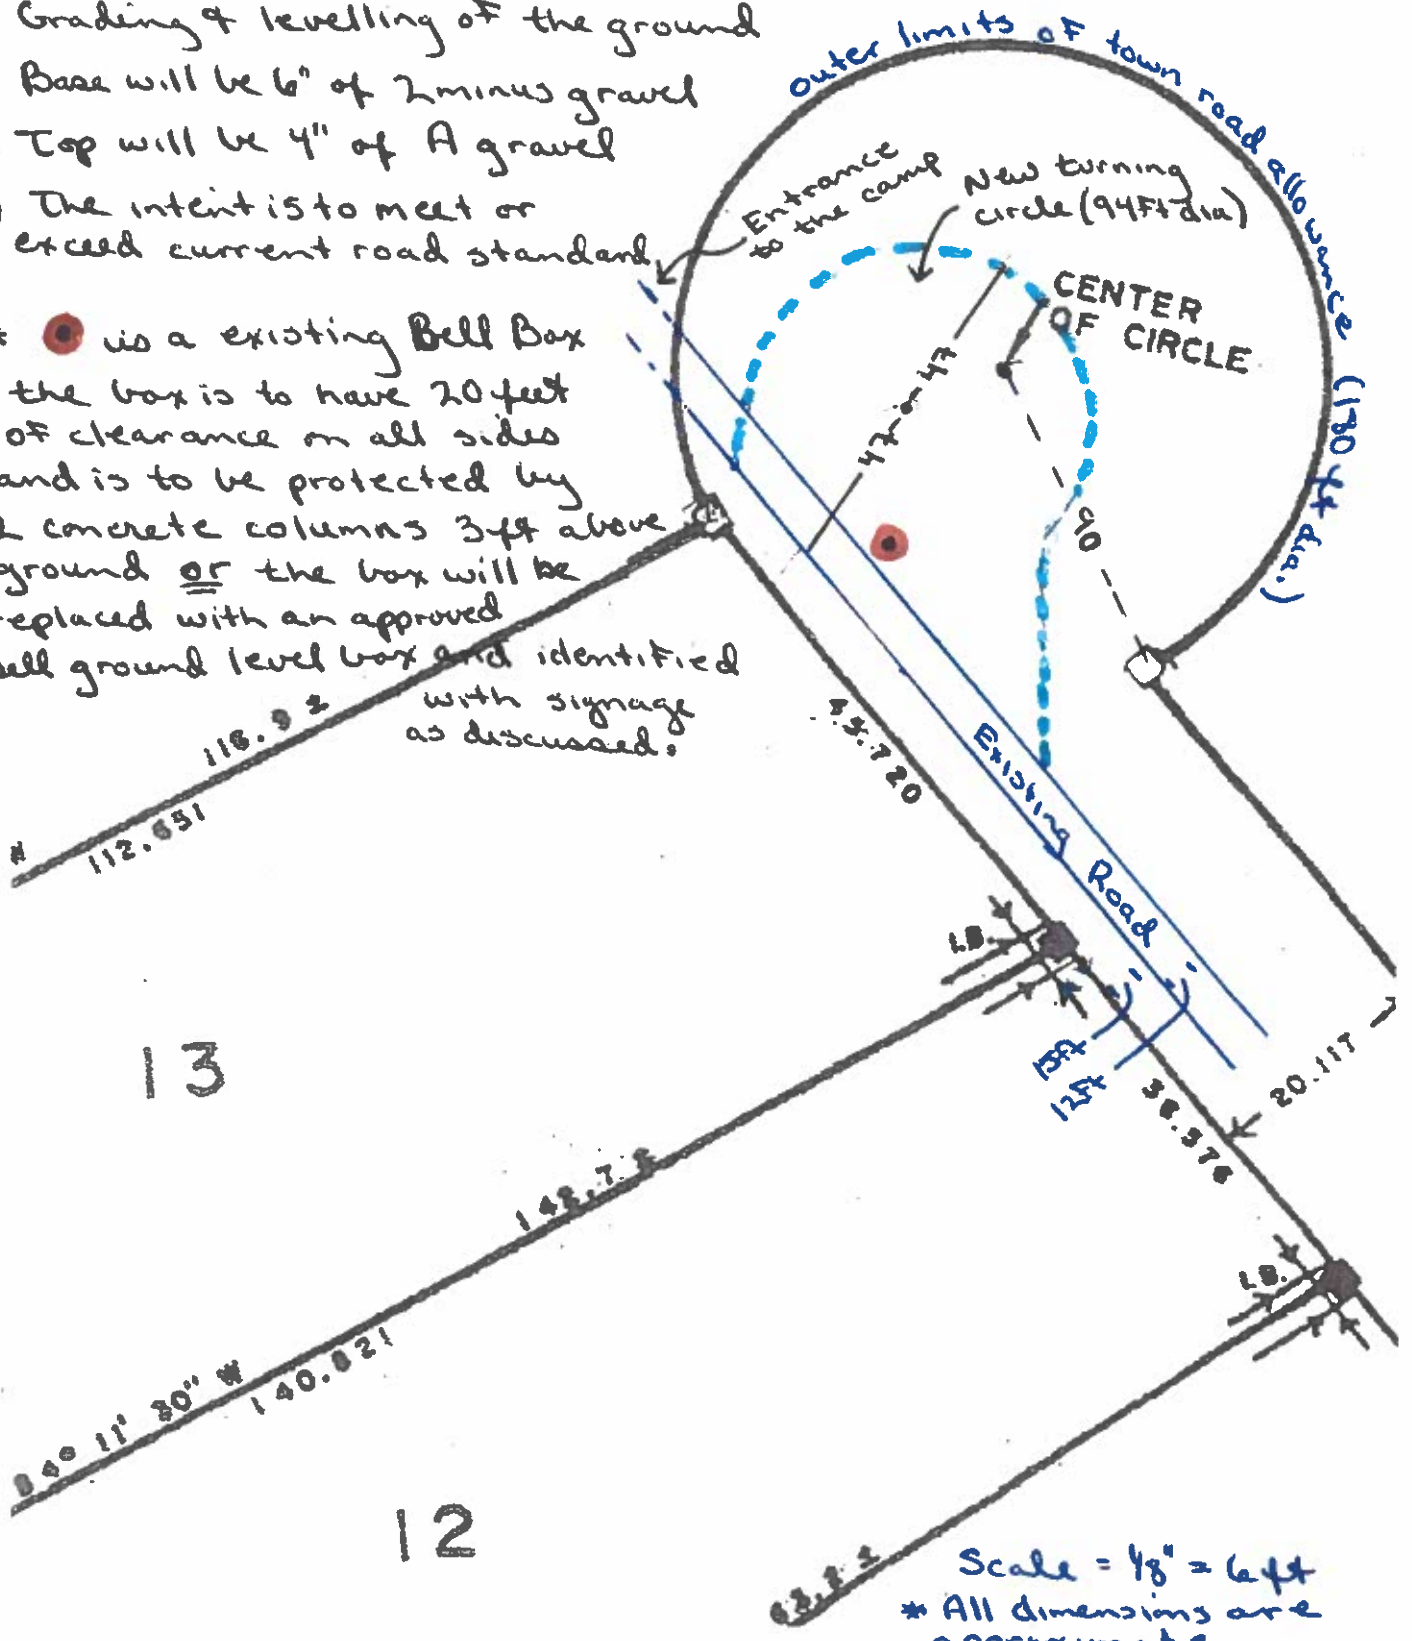 Grading & levelling of the ground
Base will be 6" of 2 minus gravel
Top will be 4" of A gravel
The intent is to meet or
exceed current road standard
is a existing Bell Box
the box is to have 20 feet
of clearance on all sides
and is to be protected by
concrete columns 3ft above
ground or the box will be
replaced with an approved
Bell ground level box and identified
with signage
as discussed.
outer limits of town road allowance (180 ft dia.)
Entrance
to the camp
New turning
circle (94Ft dia)
CENTER
OF CIRCLE
47
47
90
118.9 ±
112.651
45.720
Existing Road
I.B.
15ft
12ft
20.117
38.576
13
148.7 ±
140.821
11' 30" W
I.B.
12
Scale = 1/8" = 6ft
* All dimensions are
approximate